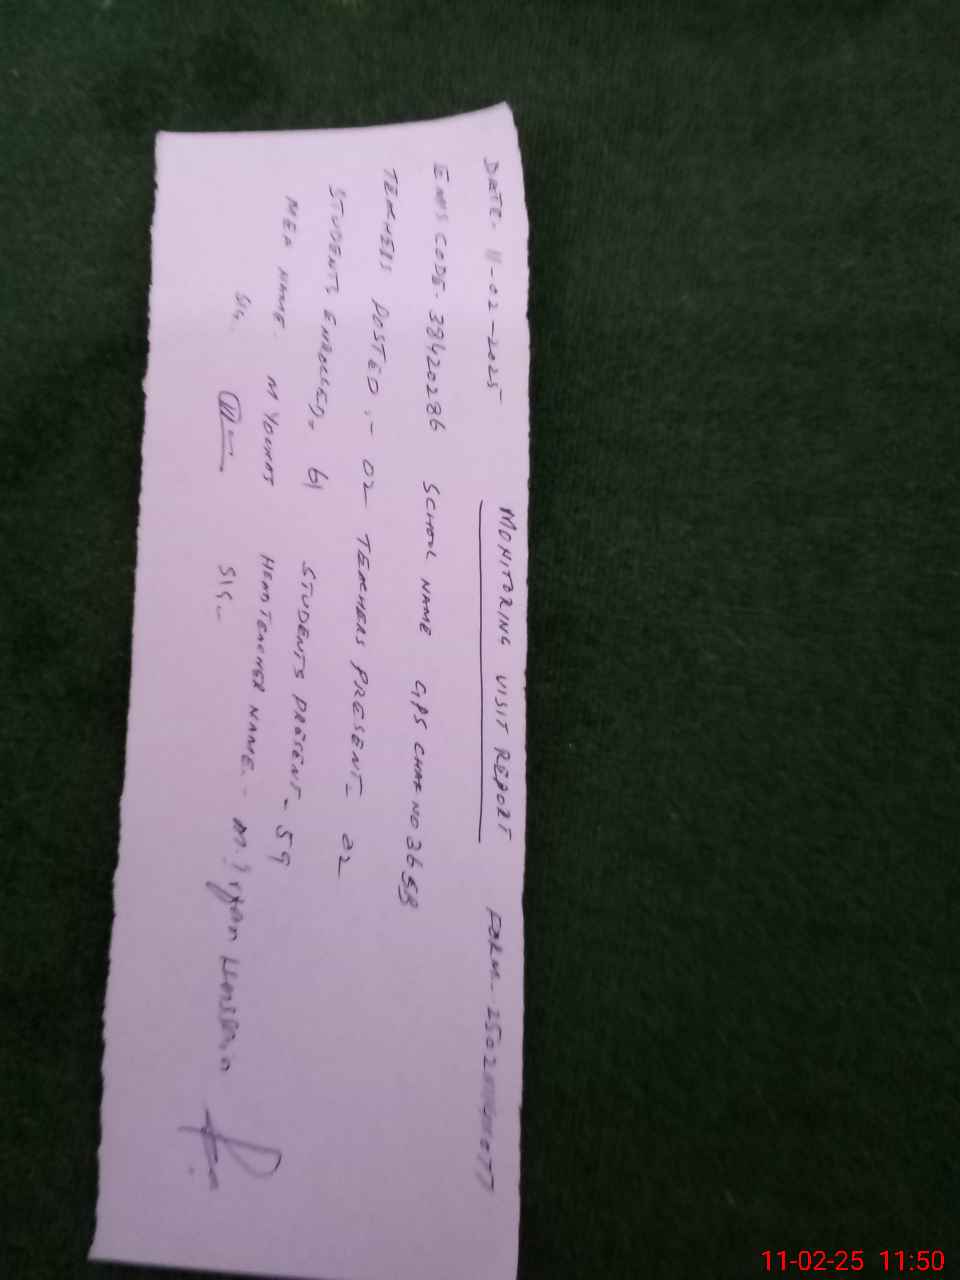 MONITORING VISIT REPORT
DATE. 11-02-2025
EMIS CODE. 38420286 SCHOOL NAME GPS CHAK NO 36 SB
TEACHERS POSTED :- 02 TEACHERS PRESENT- 02
STUDENTS ENROLLED. 61 STUDENTS PRESENT- 59
MEA NAME. M YOUNAS HEAD TEACHER NAME.- M.
SIG. SIG.
FORM-
11-02-25 11:50